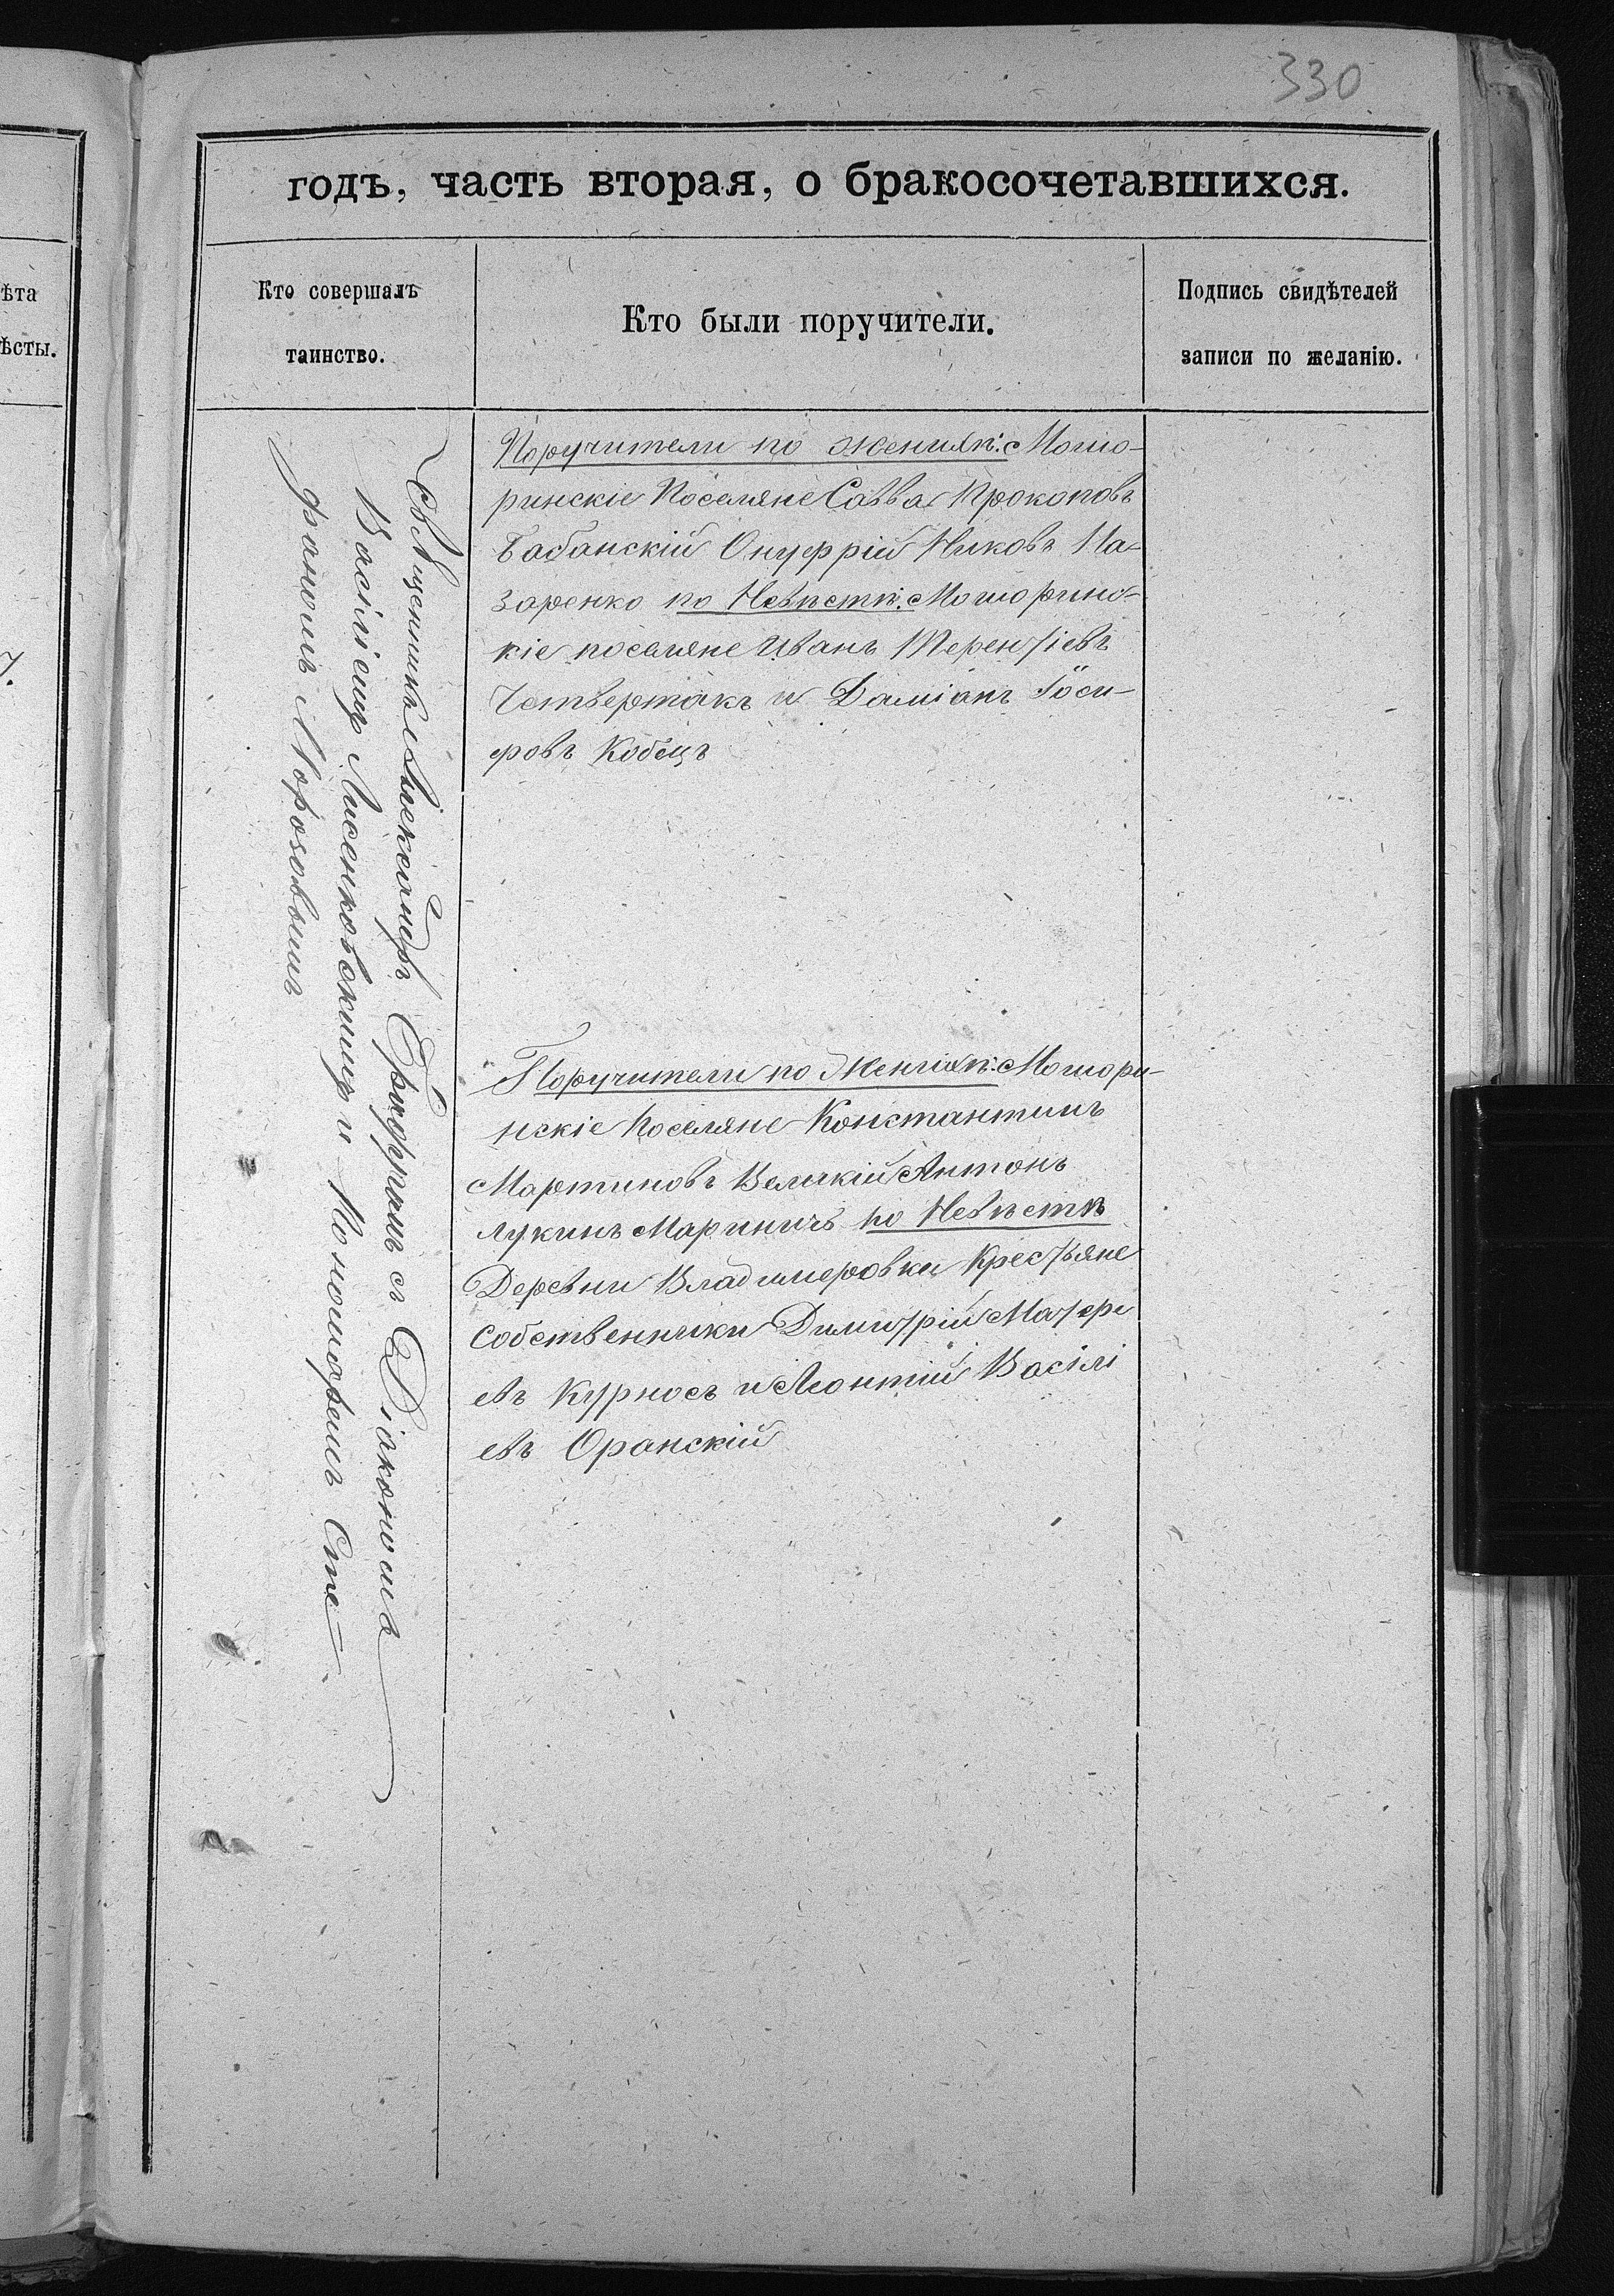 330
годъ, часть вторая, о бракосочетавшихся.
ѣта
ѣсты.
Кто совершалъ
таинство.
Кто были поручители.
Подпись свидѣтелей
записи по желанію.
7.
Священникъ Александръ съ Діакономъ
Василіемъ Лисенковскимъ и Пономаремъ Сте-
фаномъ Морозовымъ
Поручители по женихѣ: Мошо-
ринскіе Поселяне Савва Прокоповъ
Бабанскій Онуфрій Никовъ На-
заренко по Невѣстѣ: Мошоринс-
кіе поселяне Иванъ Терентіевъ
Четвертакъ и Даміанъ Іоси-
фовъ Кобецъ
Поручители по Женихѣ: Мошори-
нскіе Поселяне Константинъ
Мартиновъ Великій Антонъ
Лукинъ Мариничъ по Невѣстѣ
Деревни Владимеровки Крестьяне
Собственники Димитрій Матфе
евъ Курносъ и Леонтій Васілі
евъ Оранскій